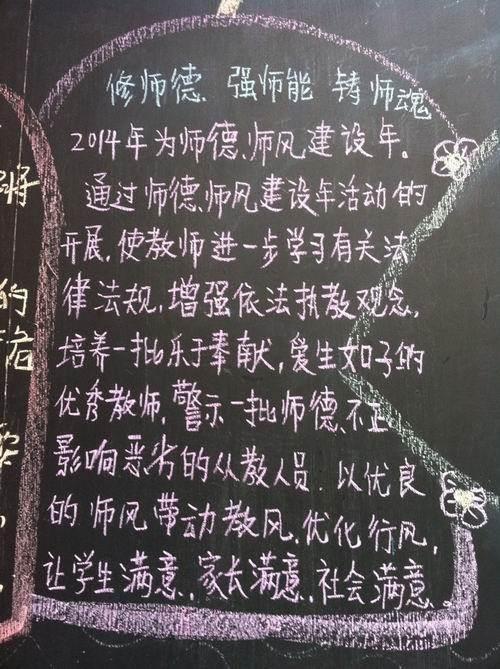 修师德、强师能 铸师魂
2014年为师德、师风建设年。
通过师德、师风建设年活动的
开展,使教师进一步学习有关法
律法规,增强依法执教观念,
培养一批乐于奉献,爱生如子的
优秀教师,警示一批师德、不正
影响恶劣的从教人员.以优良
的师风带动教风,优化行风,
让学生满意、家长满意、社会满意。
的